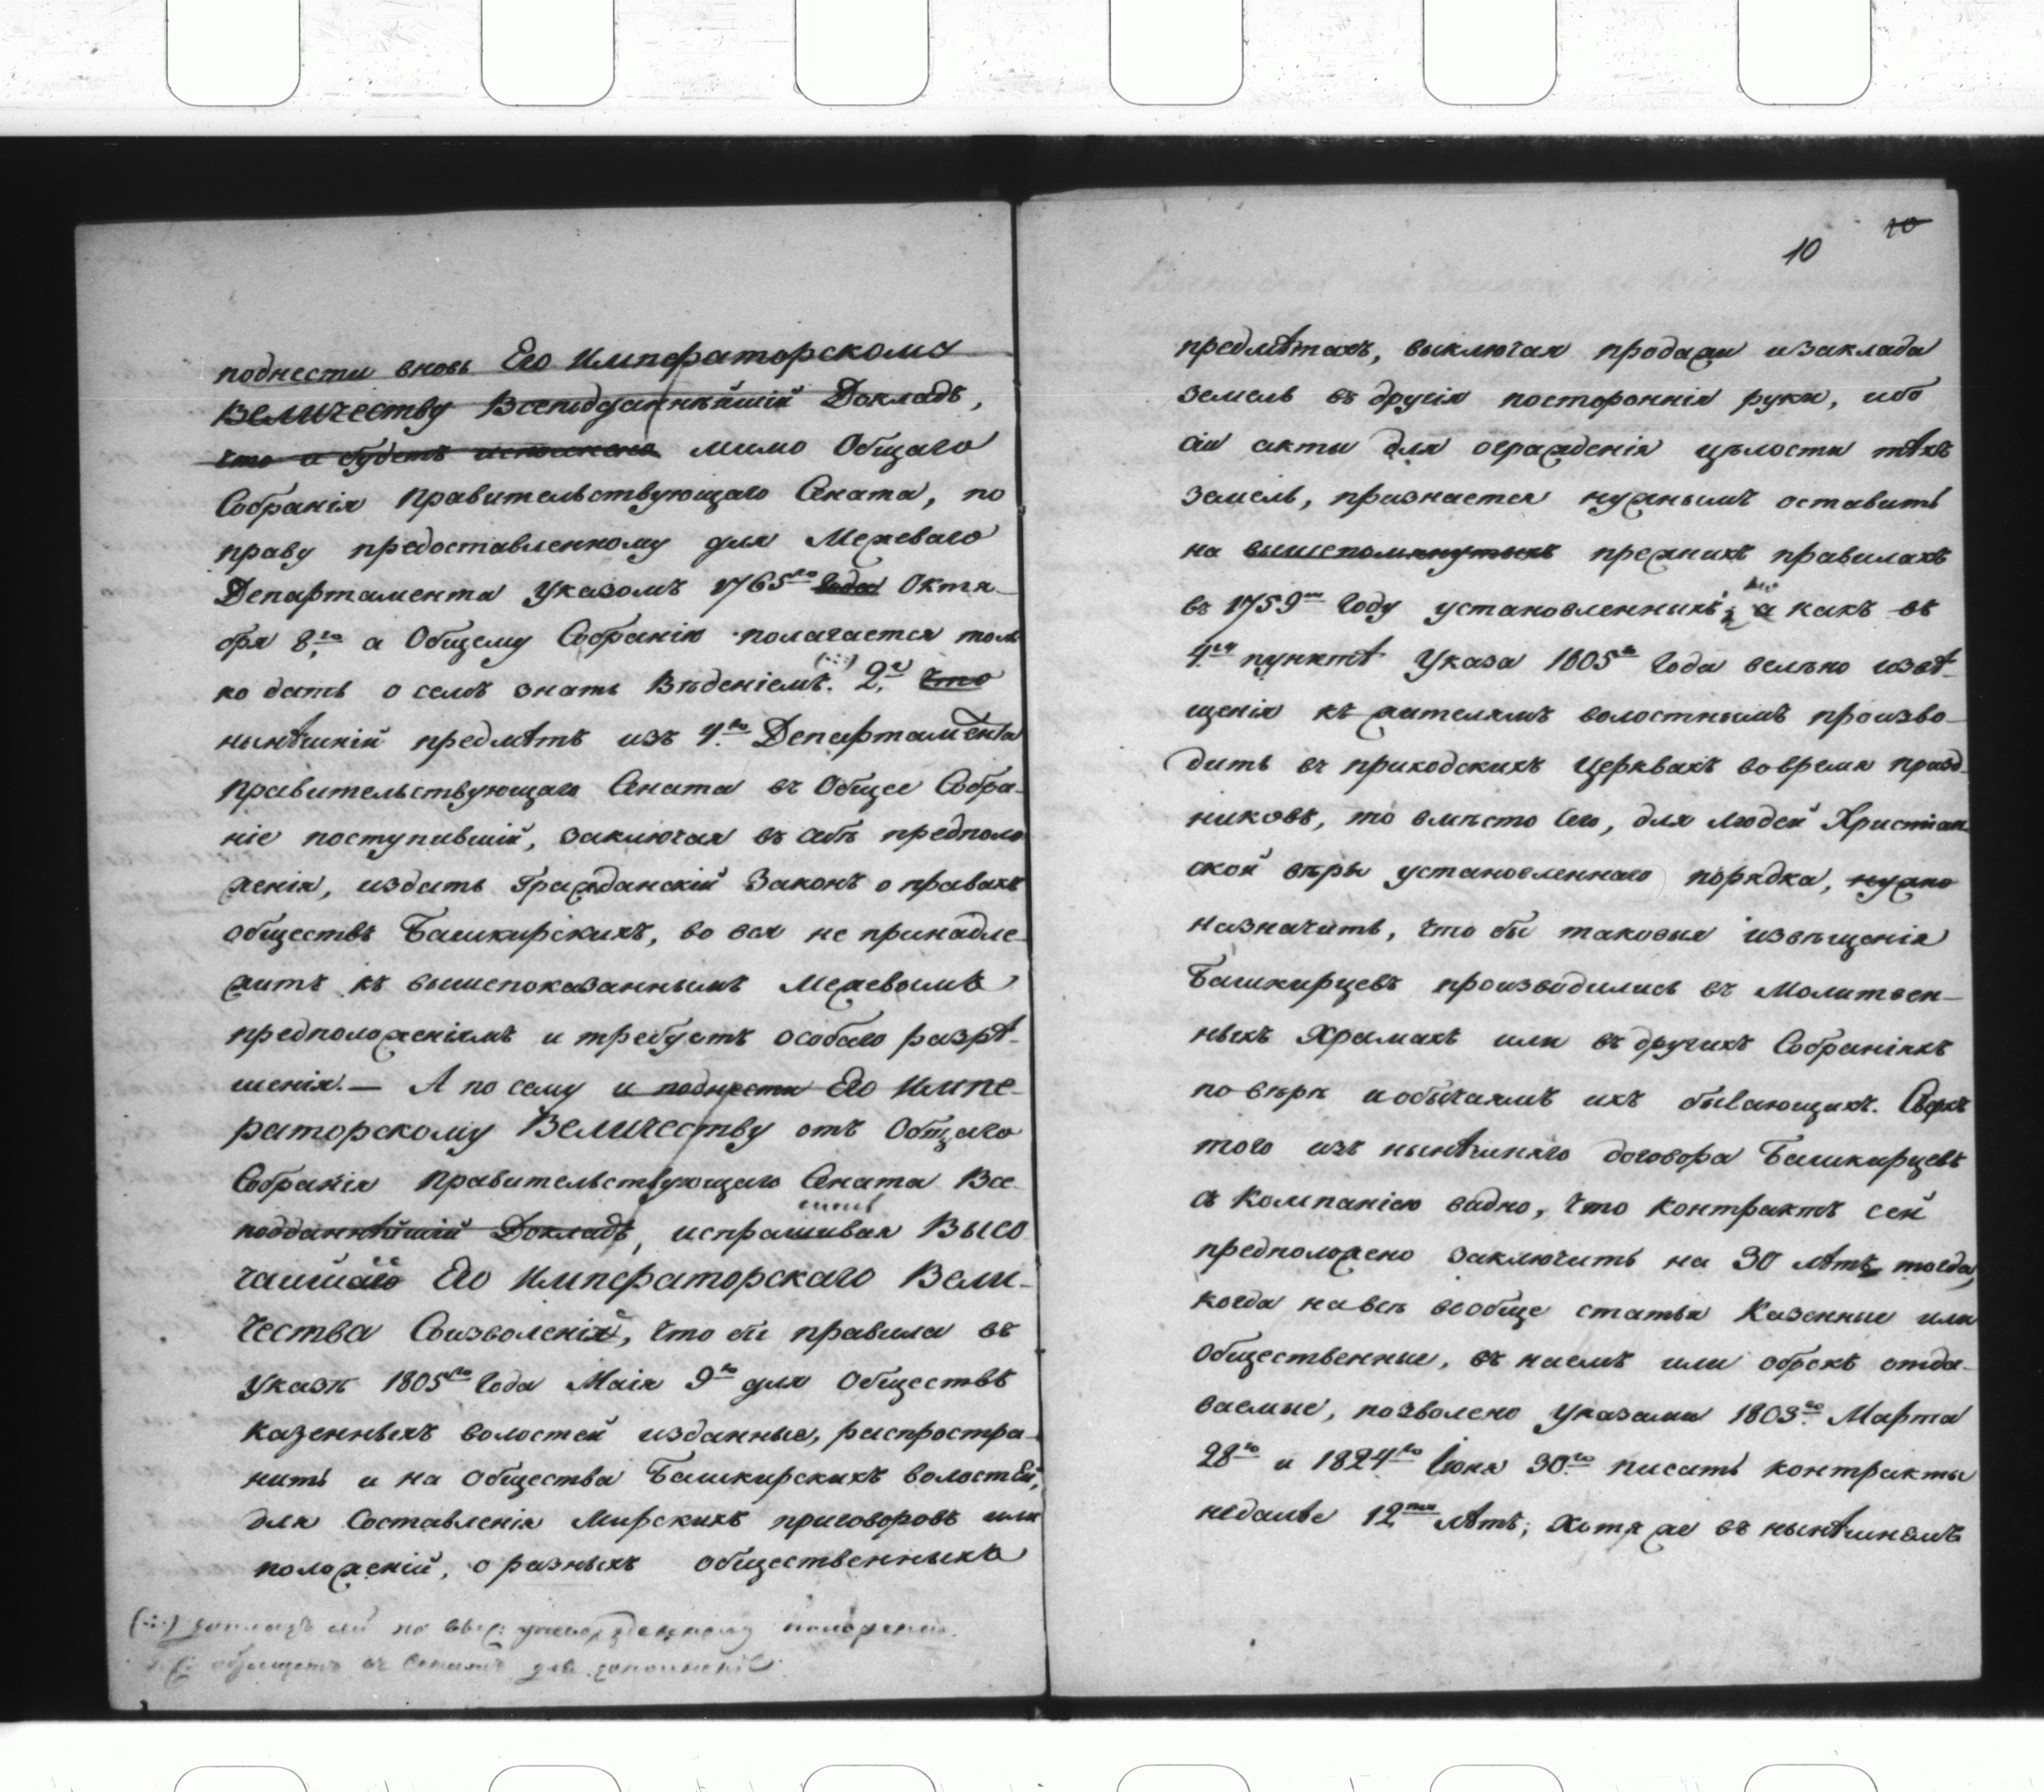 поднести вновь Его Императорскому
Величеству Всеподданнѣйшій Докладъ,
что и будетъ исполнено мимо Общаго
Собранія Правительствующаго Сената, по
праву предоставленному для Межеваго
Департамента Указомъ 1765го года Октя-
бря 8го, а Общему Собранію полагается толь
ко дать о семъ знать Вѣденіемъ. (:::) 2е, что
нынѣшній предмѣтъ изъ 4го Департамента
Правительствующаго Сената въ Общее Собра-
ніе поступившій, заключая въ себѣ предполо
женія, издать Гражданскій Законъ о правахъ
обществъ Башкирскихъ, во вся не принадле-
житъ къ вышепоказаннымъ Межевымъ
предположеніямъ и требуетъ особаго разрѣ-
шенія. — А по сему и поднести Его Импе-
раторскому Величеству отъ Общаго
Собранія Правительствующаго Сената Все-
подданнѣйшій Докладъ, испрашивая Высо
чайшаго Его Императорскаго Вели-
чества Соизволенія, что бы правила въ
Указѣ 1805го Года Маія 9го для Обществъ
казенныхъ волостей изданные, распростра-
нить и на Общества Башкирскихъ волостей,
для Составленія Мирскихъ приговоровъ или
положеній, о разныхъ общественныхъ
(:::) докладъ сей по выс: утвержденному положенію
обращенъ въ Сенатъ для дополненія.
10
10
предмѣтахъ, выключая продажи и заклада
земель въ другія постороннія руки, ибо
сіи акты для огражденія цѣлости тѣхъ
земель, признается нужнымъ оставить
на вышепомянутыхъ прежнихъ правилахъ
въ 1759м Году установленныхъ; а какъ въ
4мъ пунктѣ Указа 1805го Года велѣно извѣ-
щенія къ жителямъ волостнымъ произво-
дить въ приходскихъ Церквахъ во время празд-
никовъ, то вмѣсто Сего, для людей Христіан-
ской вѣры установленнаго порядка, нужно
назначить, что бы таковыя извѣщенія
Башкирцевъ производились въ Молитвен-
ныхъ Храмахъ или въ другихъ Собраніяхъ
по вѣрѣ и обычаямъ ихъ бывающихъ. Сверхъ
того изъ нынѣшняго договора Башкирцевъ
съ Компаніею видно, что контрактъ сей
предположено заключить на 30 лѣтъ, тогда,
когда на всѣ вообще статьи Казенные или
Общественные, въ наемъ или оброкъ отда-
ваемые, позволено Указами 1803го Марта
28го и 1824го Іюня 30го писать контракты
недалѣе 12ти лѣтъ; Хотя же въ нынѣшнемъ